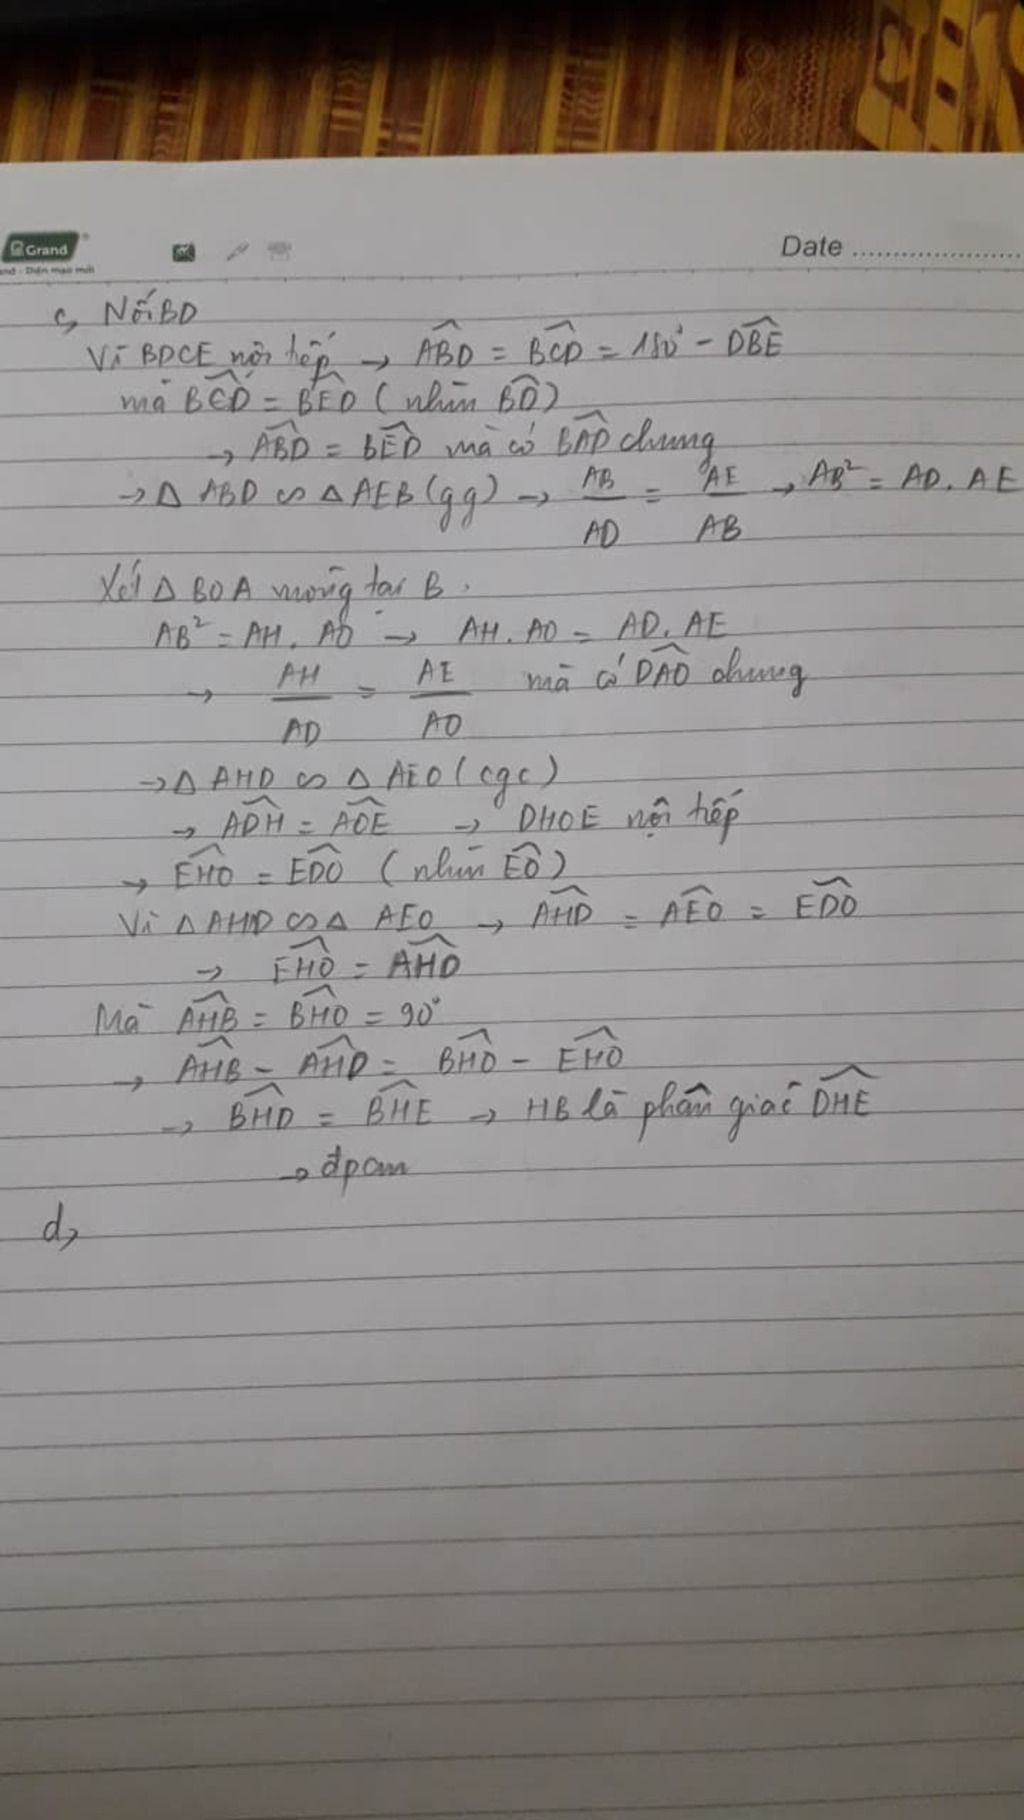 Grand
Date
c, Nối BD
Vì BDCE nội tiếp → \widehat{ABD} = \widehat{BCD} = 180° - \widehat{DBE}
mà \widehat{BCD} = \widehat{BED} ( nhìn \widehat{BD} )
→ \widehat{ABD} = \widehat{BED} mà có \widehat{BAD} chung
→ Δ ABD ∽ Δ AEB (gg) → \frac{AB}{AD} = \frac{AE}{AB} → AB² = AD. AE
Xét Δ BOA vuông tại B.
AB² = AH. AO → AH. AO = AD. AE
→ \frac{AH}{AD} = \frac{AE}{AO} mà có \widehat{DAO} chung
→ Δ AHD ∽ Δ AEO (cgc)
→ \widehat{ADH} = \widehat{AOE} → DHOE nội tiếp
→ \widehat{EHO} = \widehat{EDO} ( nhìn \widehat{EO} )
Vì Δ AHD ∽ Δ AEO → \widehat{AHD} = \widehat{AEO} = \widehat{EDO}
→ \widehat{EHO} = \widehat{AHD}
Mà \widehat{AHB} = \widehat{BHO} = 90°
→ \widehat{AHB} - \widehat{AHD} = \widehat{BHO} - \widehat{EHO}
→ \widehat{BHD} = \widehat{BHE} → HB là phân giác \widehat{DHE}
→ đpcm
d,